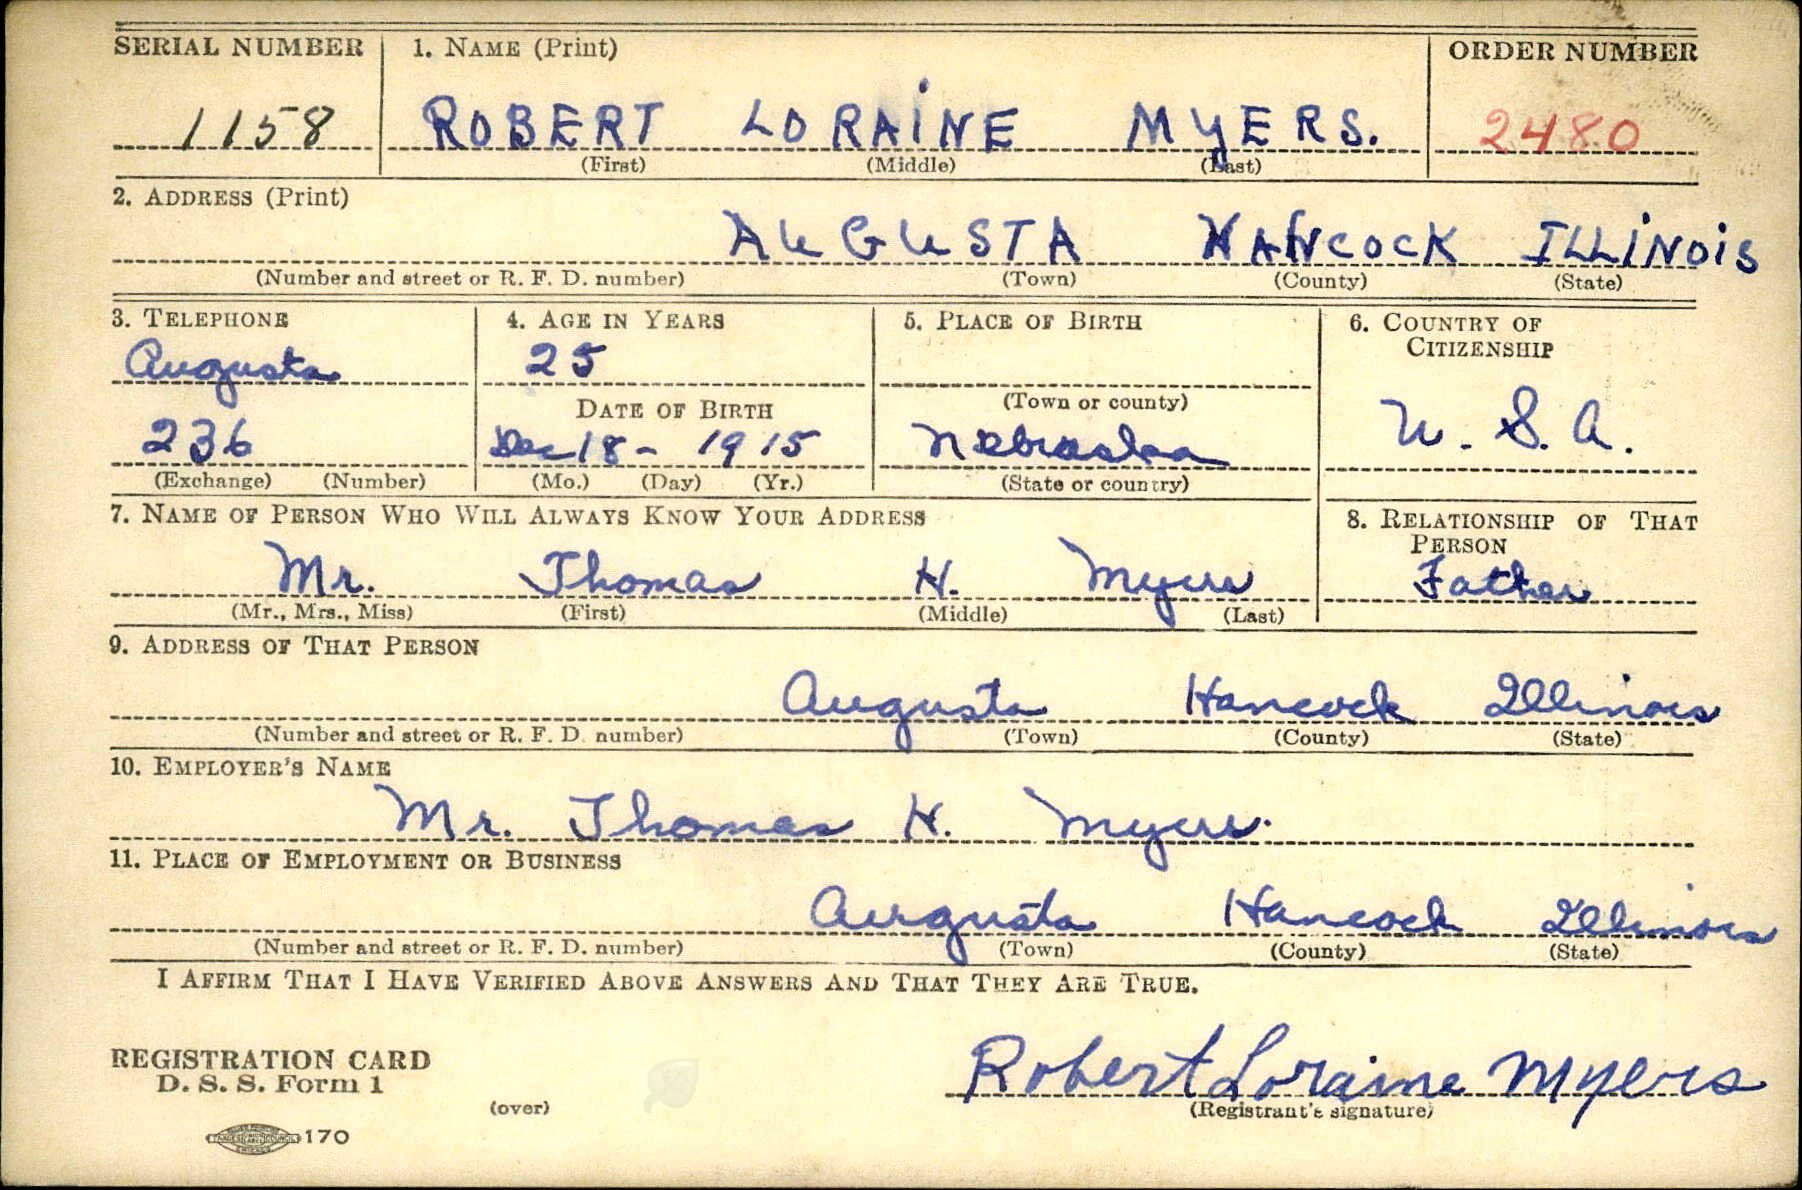 SERIAL NUMBER 1. NAME (Print) ORDER NUMBER
1158 ROBERT LORAINE MYERS. 2480
(First) (Middle) (Last)
2. ADDRESS (Print)
AUGUSTA HANCOCK ILLINOIS
(Number and street or R. F. D. number) (Town) (County) (State)
3. TELEPHONE 4. AGE IN YEARS 5. PLACE OF BIRTH 6. COUNTRY OF
CITIZENSHIP
Augusta 25
(Town or county)
DATE OF BIRTH
U. S. A.
236 Dec 18 - 1915 Nebraska
(Exchange) (Number) (Mo.) (Day) (Yr.) (State or country)
7. NAME OF PERSON WHO WILL ALWAYS KNOW YOUR ADDRESS 8. RELATIONSHIP OF THAT
PERSON
Mr. Thomas H. Myers Father
(Mr., Mrs., Miss) (First) (Middle) (Last)
9. ADDRESS OF THAT PERSON
Augusta Hancock Illinois
(Number and street or R. F. D. number) (Town) (County) (State)
10. EMPLOYER'S NAME
Mr. Thomas H. Myers.
11. PLACE OF EMPLOYMENT OR BUSINESS
Augusta Hancock Illinois
(Number and street or R. F. D. number) (Town) (County) (State)
I AFFIRM THAT I HAVE VERIFIED ABOVE ANSWERS AND THAT THEY ARE TRUE.
REGISTRATION CARD
D. S. S. Form 1
Robert Loraine Myers
(over) (Registrant's signature)
170